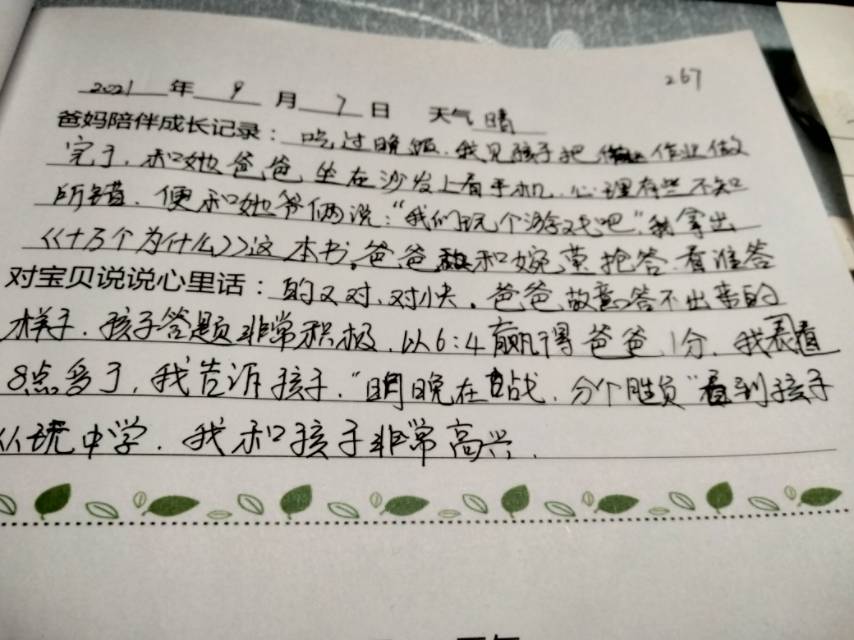 267
2021年9月7日 天气晴
爸妈陪伴成长记录：吃过晚饭，我见孩子把作业做
完了，和她爸爸坐在沙发上看手机，心理有些不知
所错，便和她爷俩说：“我们玩个游戏吧”我拿出
《十万个为什么》这本书，爸爸和婉萍抢答，看谁答
对宝贝说说心里话：的又对、对快。爸爸故意答不出来的
样子，孩子答题非常积极，以6:4赢得爸爸1分，我看
8点多了，我告诉孩子，“明晚在战，分个胜负”看到孩子
从玩中学，我和孩子非常高兴。